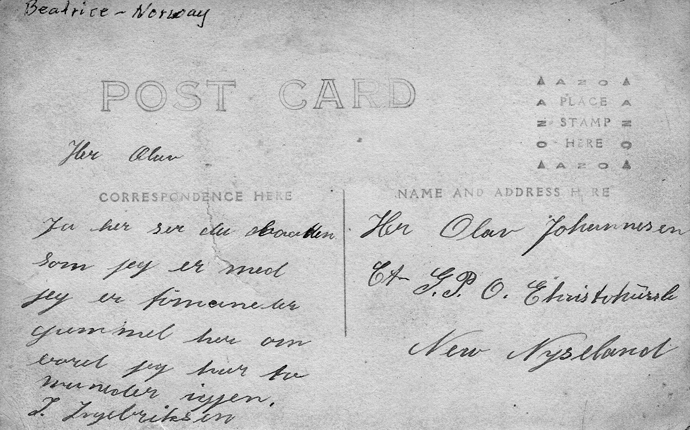 Beatrice - Norway
POST CARD
AZO
PLACE
STAMP
HERE
AZO
Her Olav
CORRESPONDENCE HERE
NAME AND ADDRESS HERE
Ja her ser du baaden
som jeg er med
jeg er
gammel her om
jeg har to
maneder igjen.
Ingebriksen
Hr Olav Johannesen
G.P.O. Christchürsh
New Nyseland